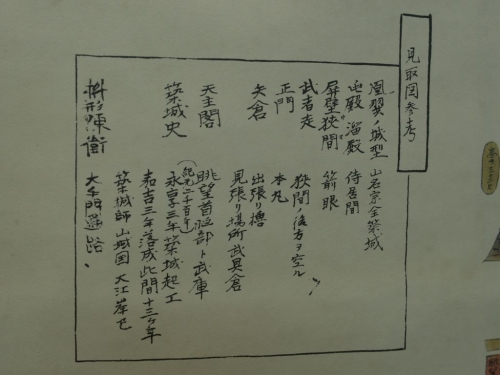 見取図参考
鳳翼ノ城型 山名京金築城
虎殿 溜殿 侍居間
屏壁狭間 箭眼
武者走 狭間ノ後方ヲ空ル
正門 本丸
矢倉 出張リ櫓
見張リ場所 武具倉
天主閣 眺望首脳部ト武庫
築城史 永享三年築城起工
嘉吉三年落成此間十三ヶ年
築城師 山城国 大江
桝形陳衛 大手門通路